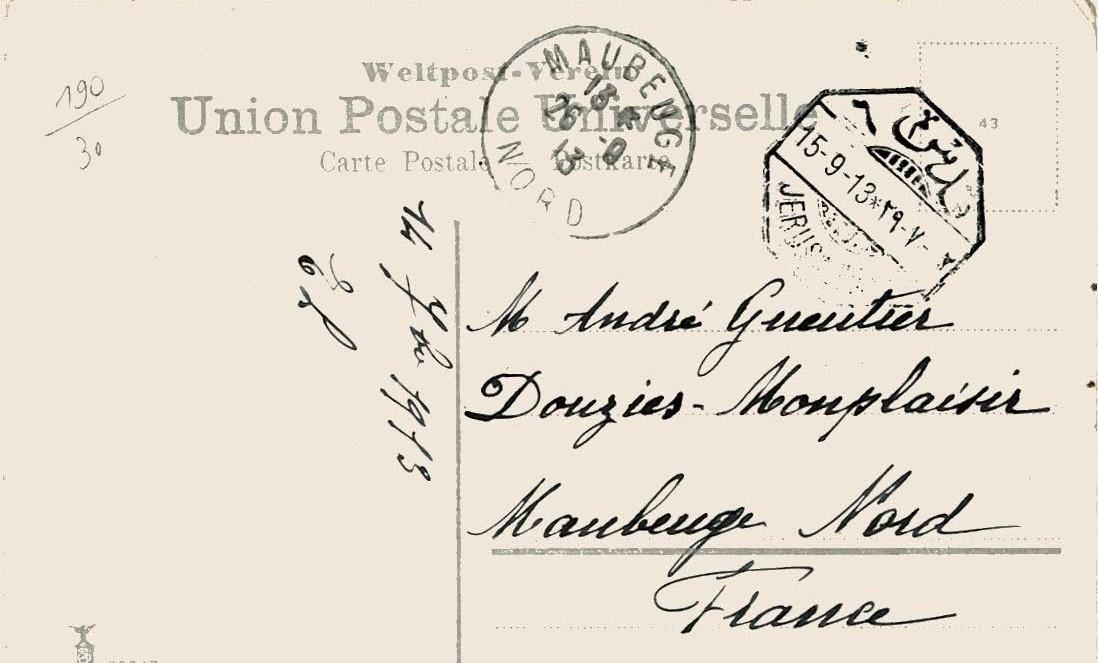 190
30
Weltpost-Verein
Union Postale Universelle
Carte Postale Postkarte
MAUBEUGE
26 -9
13
NORD
43
15-9-13*٢٩-٧-
14 1913
M André Gueutier
Douzies-Monplaisir
Maubeuge Nord
France